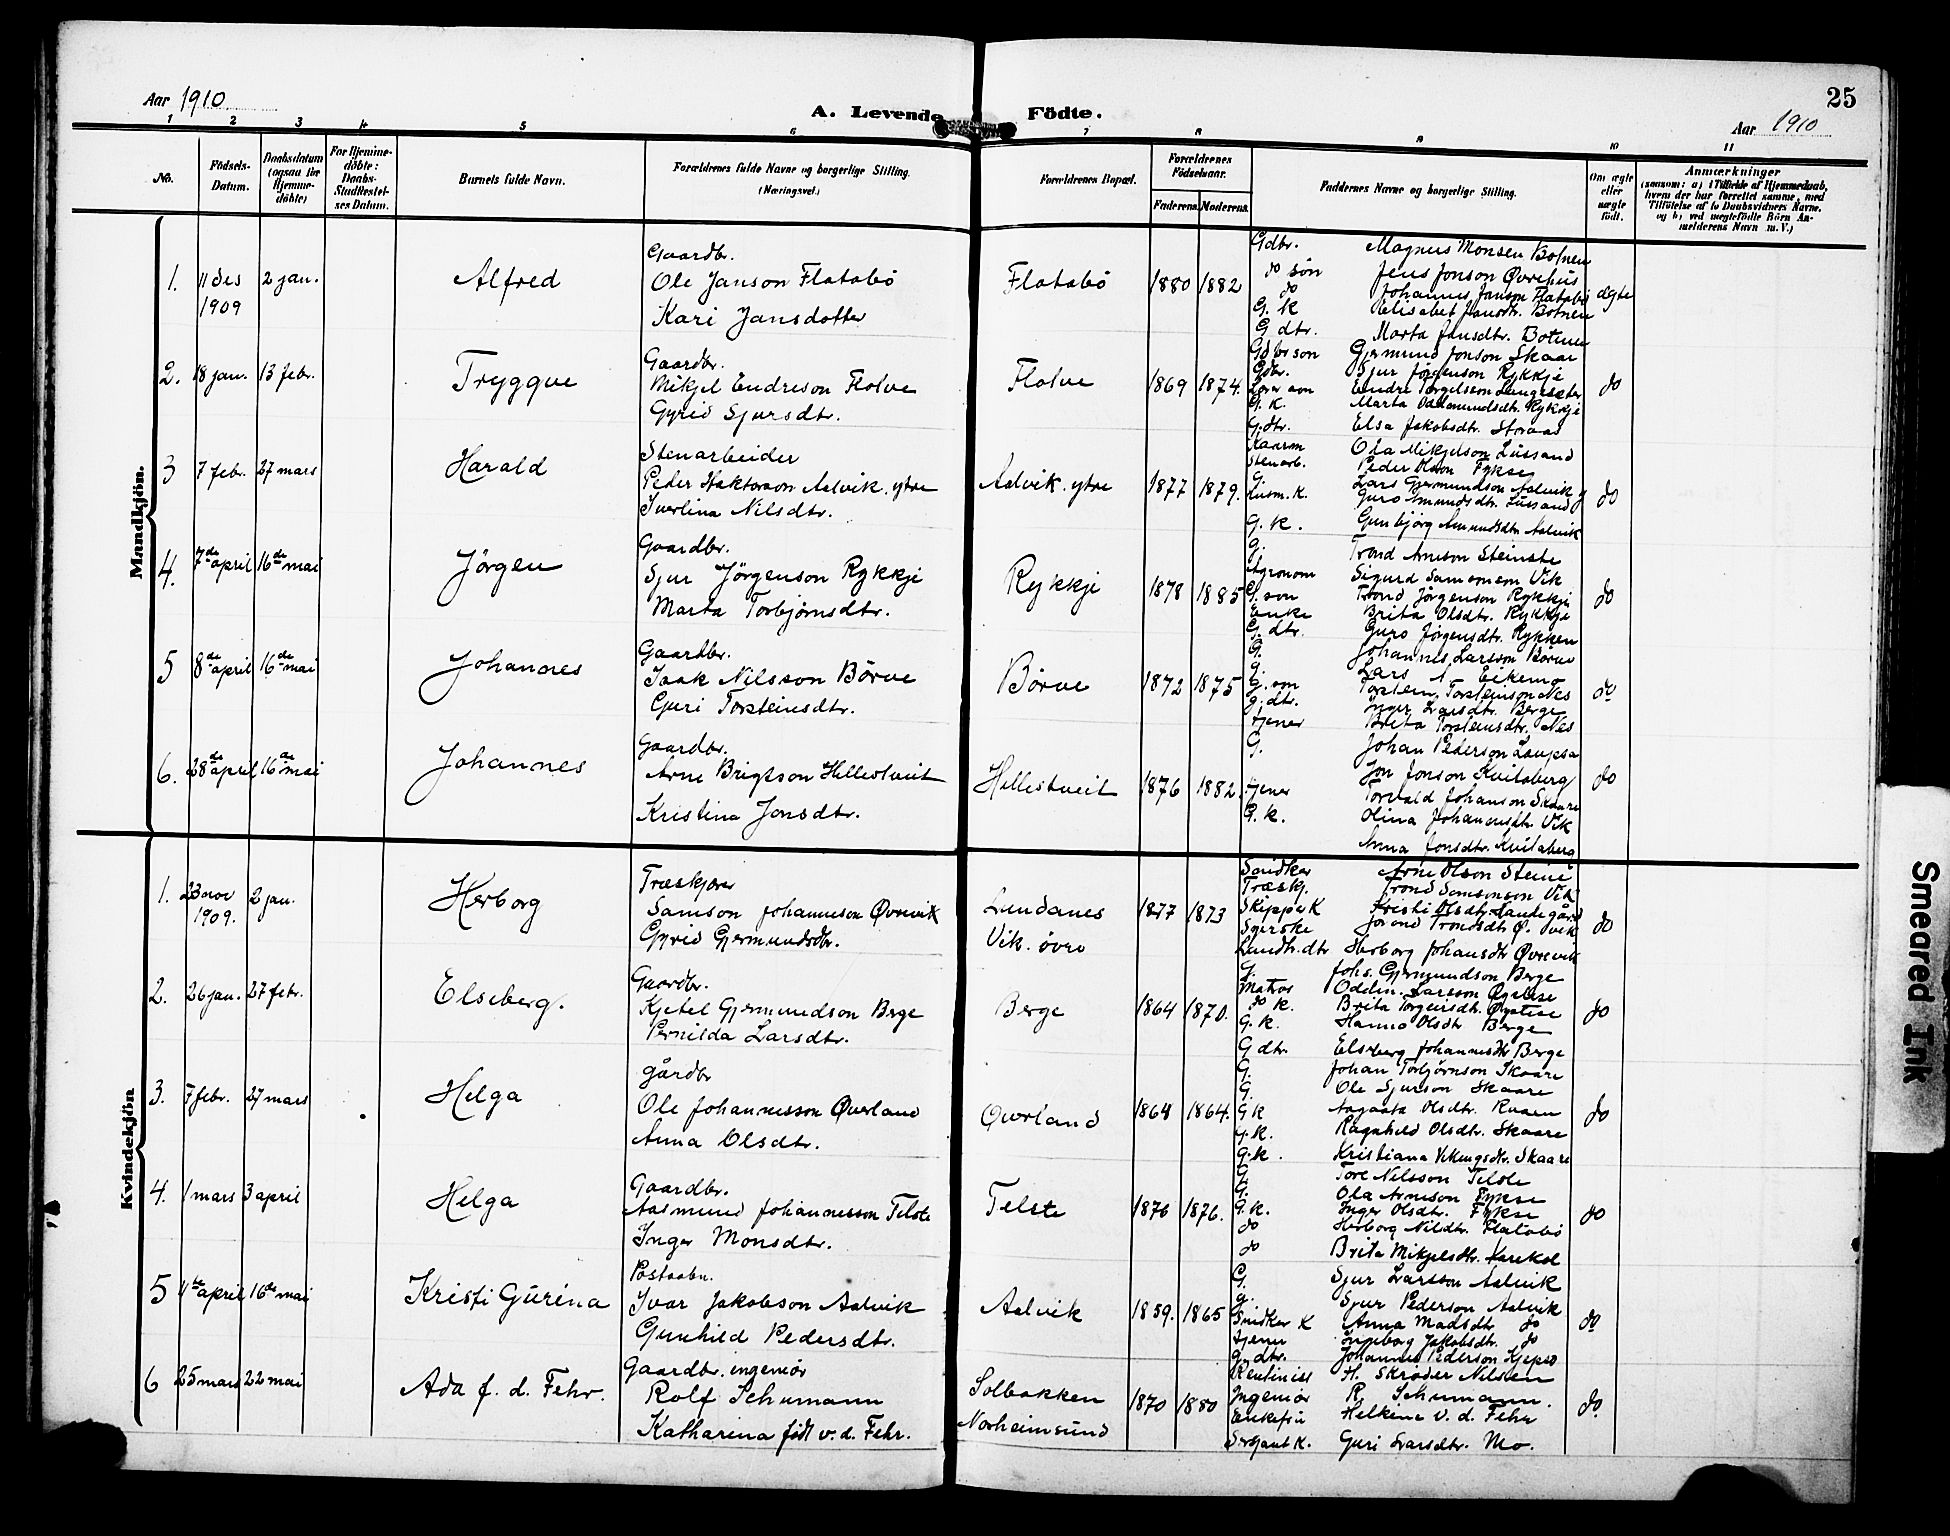 25
Aar 1910
A. Levende Födte.
Aar 1910
1 2 3 4 5 6 7 8 9 10 11
No.
Födsels-Datum.
Daabsdatum (ogsaa for Hjemme-döbte)
For Hjemme-döbte: Daabs-Stadfæstel-ses Datum.
Barnets fulde Navn.
Forældrenes fulde Navne og borgerlige Stilling. (Næringsvei.)
Forældrenes Bopæl.
Forældrenes Födselsaar.
Faderens. Moderens.
Faddernes Navne og borgerlige Stilling.
Om ægte eller uægte födt.
Anmærkninger
(saasom: a) i Tilfælde af Hjemmedaab, hvem der har forrettet samme, med Tilföielse af to Daabsvidners Navne, og b) ved uægtefödte Börn An-melderens Navn m. V.)
Mandkjön.
1. 11 des 1909 2 jan. Alfred
Gaardbr.
Ole Janson Flatabö
Kari Jansdotter
Flatabö 1880 1882 ægte
Gdbr. Magnus Monsen Botnen
do søn Jens Jonson Øvrehus
do Johannes Janson Flatabö
G. k Elisabet Jansdtr. Botnen
G dtr. Marta Jansdtr. Botnen
2. 18 jan. 13 febr. Tryggve
Gaardbr.
Mikjel Endreson Flotve
Gyrid Sjursdtr.
Flotve 1869 1874. do
Gdbr son Gjermund Jonson Skaar
Gdbr. Sjur Jørgenson Rykkje
Endre Torgelsson
G. K. Marta Odmundsdtr. Rykkje
G. dtr. Elsa Jakobsdtr. Storaas
3 7 febr. 27 mars Harald
Stenarbeider
Peder Haktorson Aalvik. ytre
Iverlina Nilsdtr.
Aalvik. ytre 1877 1879. do
Kaarm Ola Mikjelson Lussand
Stenarb. Peder Olson Fykse
G. Lars Gjermundson Aalvik y
Husm. K. Guro Amundsdtr. Lussand
G. K. Gunbjörg Amundsdtr Aalvik
4. 7de april 16de mai Jörgen
Gaardbr.
Sjur Jörgenson Rykkje
Marta Torbjörnsdtr.
Rykkje 1878 1885 do
G. Trond Arneson Steinstø
Agronom Sigurd Samsonson Vik
G. son Trond Jörgenson Rykkje
Enke Brita Olsdtr. Rykkje
G. dtr. Guro Jørgensdtr. Rykken
5 8de april 16de mai Johannes
Gaardbr.
Isak Nilsson Börve
Guri Torsteinsdtr.
Börve 1872 1875 do
G. Johannes Larsson Börve
G. Lars Eikemo
G. son Torstein Torsteinson Nes
G. dtr. Inger Larsdtr. Berge
tjener Brita Torsteinsdtr. Nes
6. 28de april 16de mai Johannes
Gaardbr.
Arne Brigtson Hellestveit
Kristina Jonsdtr.
Hellestveit 1876 1882. do
G. Johan Pederson Laupsa
Jon Jonson Kvitaberg
tjener Torvald Johanson Skaare
G. k. Olina Johannesdtr. Vik
Anna Jonsdtr. Kvitaberg
Kvindekjön
1. 23 nov 1909. 2 jan. Herborg
Træskjærer
Samson Johannesson Øvrevik
Gyrid Gjermundsdtr.
Lundanes
Vik. övre 1877 1873 do
Snidker Arne Olson Steine
Træskj. Trond Samsonson Vik
Skipper K Kristi Olsdtr. Sandegård
Syerske Jorond Trondsdtr Ø. vik
Landh. dtr Herborg Johansdtr Øvrevik
2. 26 jan. 27 febr. Elseberg.
Gaardbr.
Kjetel Gjermundson Berge
Pernilda Larsdtr.
Berge 1864 1870. do
G. Johs. Gjermundson Berge
Matros Oddin. Larsson Øystese
do k. Brita Torgeirsdtr. Øystese
G. k. Hanna Olsdtr Berge
G dtr. Elseberg Johannesdtr Berge
3. 7 febr. 27 mars Helga
gårdbr
Ole Johannesson Øverland
Anna Olsdtr.
Øverland 1864 1864. do
G. Johan Torbjörnson Skaare
G. Ole Sjurson Skaare
G K Aagaata Olsdtr.
G. K. Ragnhild Olsdtr. Skaare
G. K. Kristiana Vikingsdtr. Skaare
4. 1 mars 3 april Helga
Gaardbr.
Aasmund Johannesson Telste
Inger Monsdtr.
Telste 1876 1876. do
G. Tore Nilsson Telste
G. Ola Arneson Fykse
G. k. Inger Olsdtr. Fykse
do Herborg Nilsdtr. Flatabö
do Brita Mikjelsdtr.
5 11te april 16de mai Kristi Gurina
Postaabn.
Ivar Jakobson Aalvik
Gunhild Pedersdtr.
Aalvik 1859. 1865 do
G. Sjur Larsson Aalvik
G. Sjur Pederson Aalvik
Snidker K Anna Madsdtr do
tjener Ingeborg Jakobsdtr. do
G. dtr. Johannes Pederson Kjepso
6 25 mars 22 mai Ada f. d. Fehr.
Gaardbr. ingeniör
Rolf Schumann
Katharina født v. d. Fehr.
Solbakken
Norheimsund 1870 1880 do.
H. Skrøder Nilsen
Ingeniør R. Schumann.
Enkefru Helkine v. d. Fehr
Sersjant K. Guri Larsdtr. Mo.
Smeared Ink